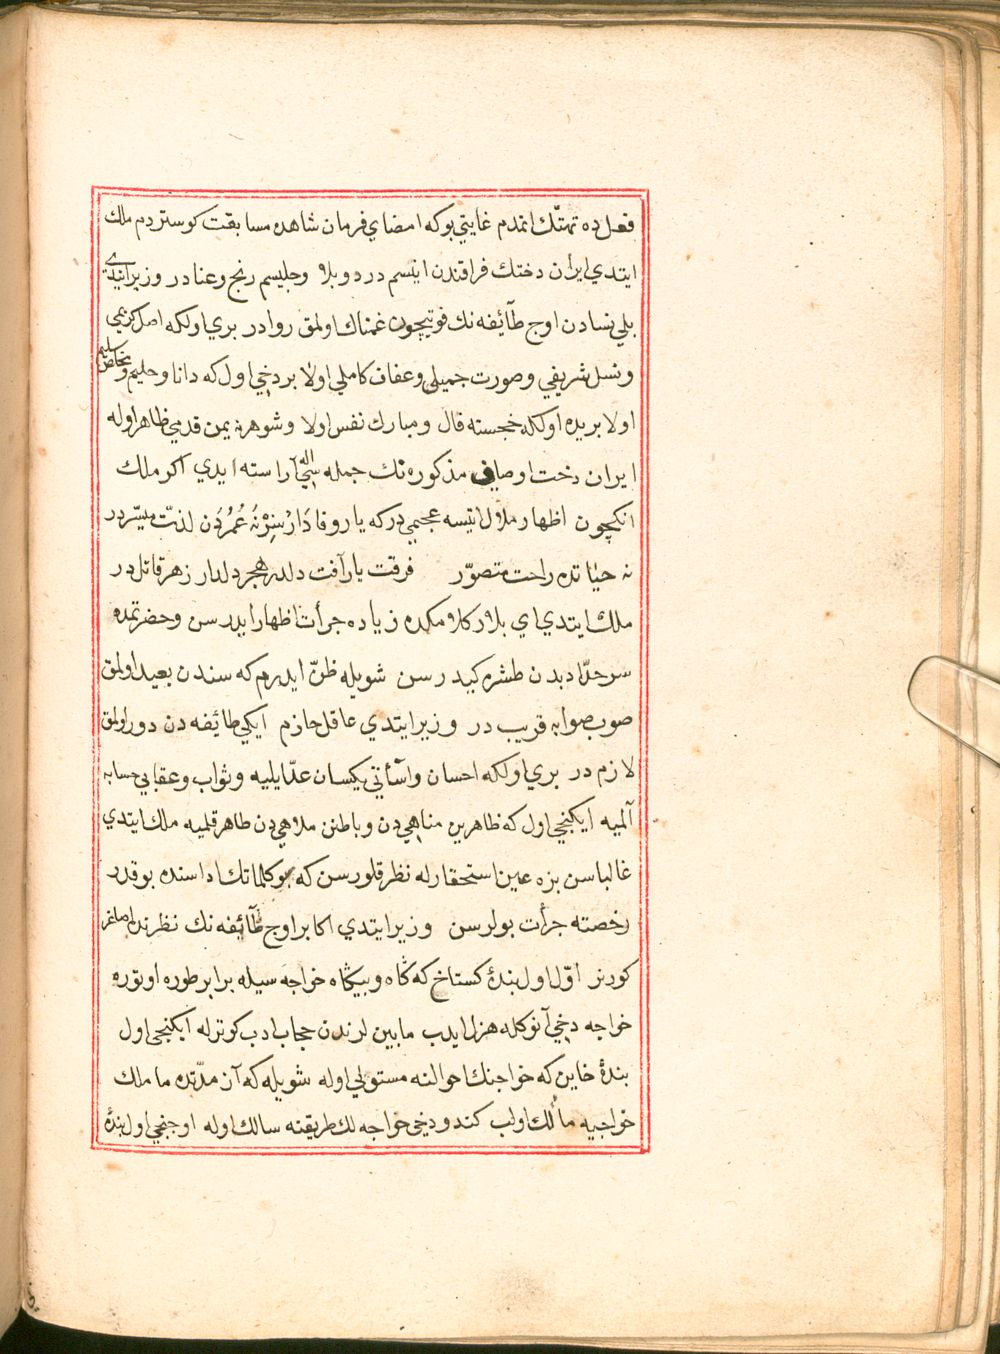 فعل ده تهتّك اتمدم غايتي بو كه امضاي فرمان شاهده مسابقت كوستردم ملك
ايتدي ايران دختك فراقندن انيسم درد و بلا و جليسم رنج و عنا در وزير ايتدي
بلي نسادن اوج طآئفه نك فوتيچون غمناك اولمق روا در بري اولكه اصل كريمي
و نسل شريفي و صورت جميلي و عفاف كاملي اولا بر دخي اول كه دانا و حليم و مخلص سليم
اولا بريده اولكه خجسته فال و مبارك نفس اولا و شوهرنه يمن قدمي ظاهر اوله
ايران دخت اوصاف مذكوره نك جمله سي اله آراسته ايدي اكر ملك
انكچون اظهار ملال ايتسه عجمي در كه يار وفادارْسِزْ نَه عُمُرْدَن لذّت ميسّر در
نه حياتده راحت متصوّر فرقت يار آفت دلدر هجر دلدار زهر قاتل در
ملك ايتدي اي بلار كلامكده زياده جرأت اظهار ايدرسن و حضرتمده
سرحدّ ادبدن طشره كيدرسن شويله ظنّ ايدرم كه سندن بعيد اولمق
صوب صوابه قريب در وزير ايتدي عاقل حازم ايكي طائفه دن دور اولمق
لازم در بري اولكه احسان و اسآتي يكسان عدّ ايليه و ثواب و عقابي حسابه
آلميه ايكنجي اول كه ظاهرين مناهي دن و باطنن ملاهي دن طاهر قلميه ملك ايتدي
غالبا سن بزه عين استحقارله نظر قلورسن كه بو كلماتك اداسنده بو قدر
رخصته جرأت بولرسن وزير ايتدي اكابر اوج طآئفه نك نظرنده اصاغر
كورنر اوّل اول بندهٔ كستاخ كه كاه و بيكاه خواجه سيله برابر طوره اوتوره
خواجه دخي آنوكله هزل ايدب مابينلرندن حجاب ادب كوترله ايكنجي اول
بندهٔ خاين كه خواجنك احوالنه مستولي اوله شويله كه آز مدّتده ما ملك
خواجيه مالك اولب كندو دخي خواجه لك طريقنه سالك اوله اوجنجي اول بندهٔ